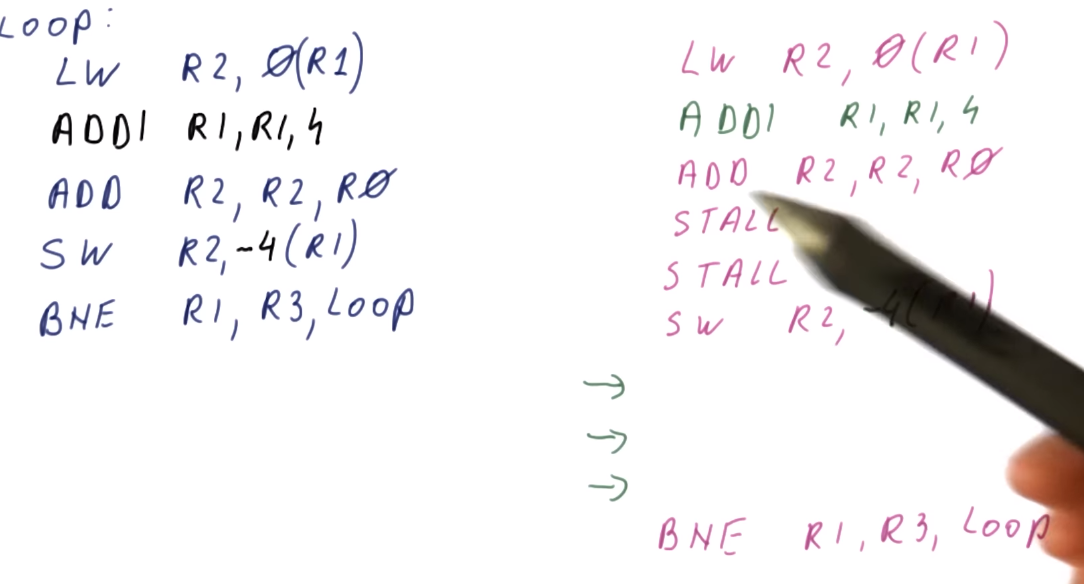 LOOP:
LW R2, 0(R1)
ADDI R1, R1, 4
ADD R2, R2, R0
SW R2, -4(R1)
BNE R1, R3, LOOP
LW R2, 0(R1)
ADDI R1, R1, 4
ADD R2, R2, R0
STALL
STALL
SW R2, -4(R1)
→
→
→
BNE R1, R3, LOOP